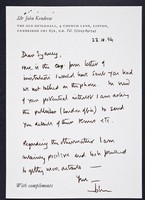 Dr John Kendrew
THE OLD GUILDHALL, 4 CHURCH LANE, LINTON,
CAMBRIDGE CB1 6JX, U.K.
23.10.94
Dear Sydney,
Here is the form letter of
invitation I would have sent you had
we not talked on the phone. In view
of your potential interest I am asking
the publisher (London office) to send
you details of their terms etc.
Regarding the observations I am
remaining positive and look forward
to getting more details.
Yours
John
With compliments